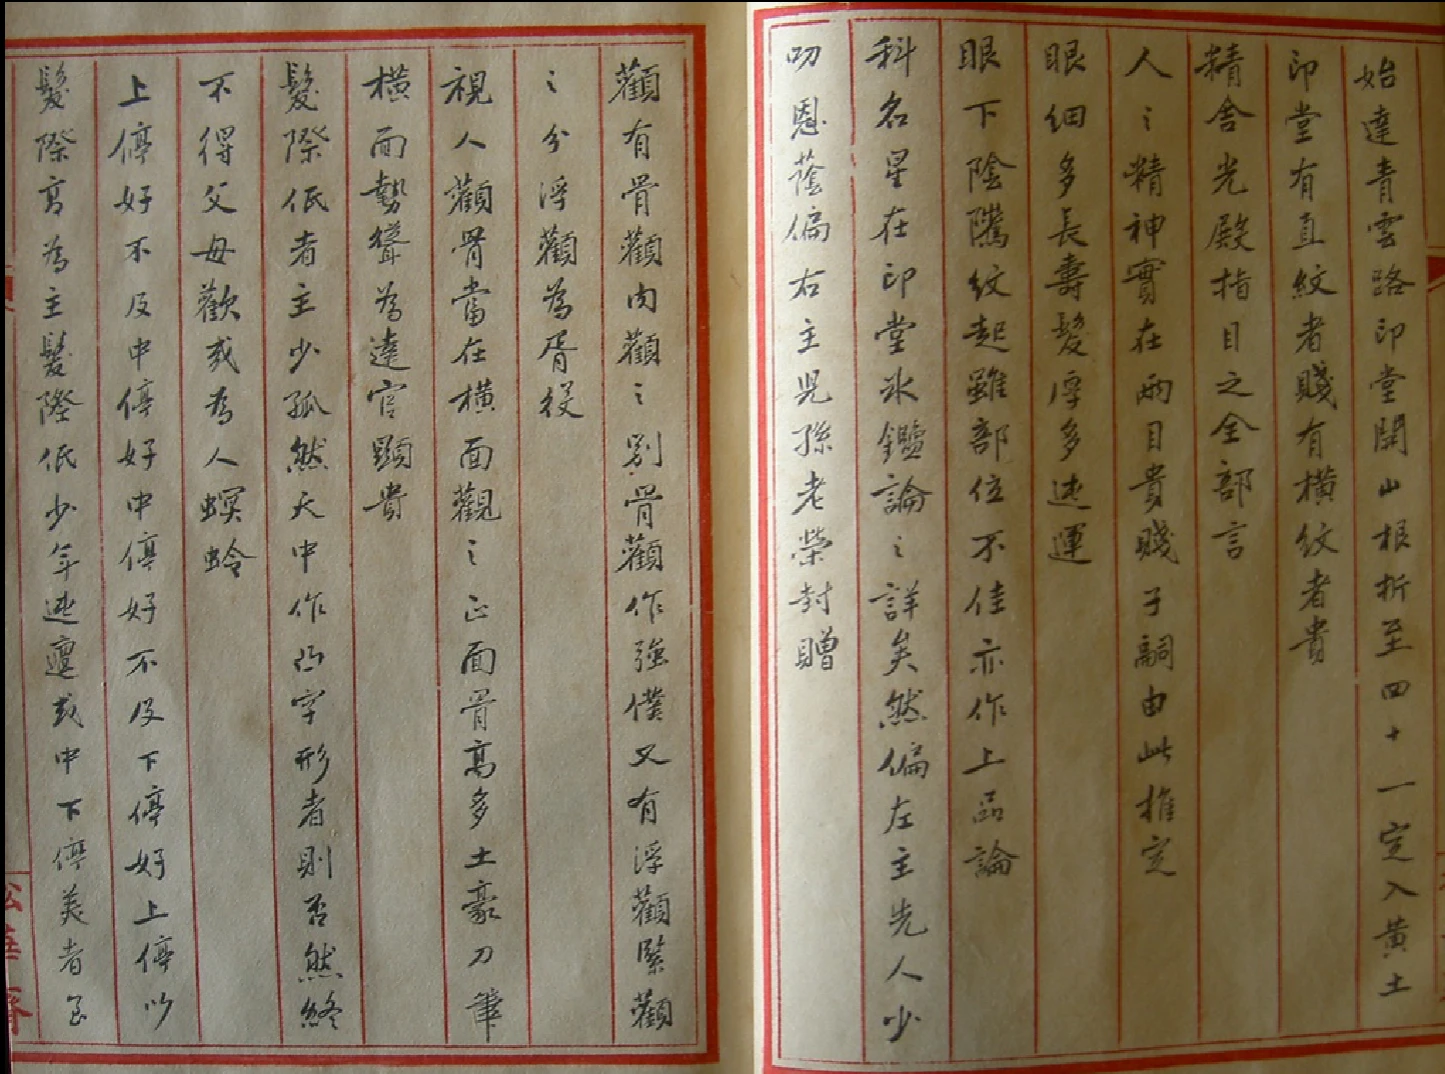 始達青雲路印堂開山根折至四十一定入黃土
印堂有直紋者賤有橫紋者貴
精舍光殿指目之全部言
人之精神實在兩目貴賤子嗣由此推定
眼細多長壽髮浮多迍運
眼下陰隲紋起雖部位不佳亦作上品論
科名星在印堂氷鑑論之詳矣然偏左主先人少
叨恩蔭偏右主兒孫老榮封贈
顴有骨顴肉顴之別骨顴作強僕又有浮顴緊顴
之分浮顴為胥役
視人顴骨當在橫面觀之正面骨高多土豪刀筆
橫面勢聳為達官顯貴
髮際低者主少孤然天中作凸字形者則否然終
不得父母歡或為人螟蛉
上停好不及中停好中停好不及下停好上停以
髮際高為主髮際低少年迍邅或中下停美者
松華齋